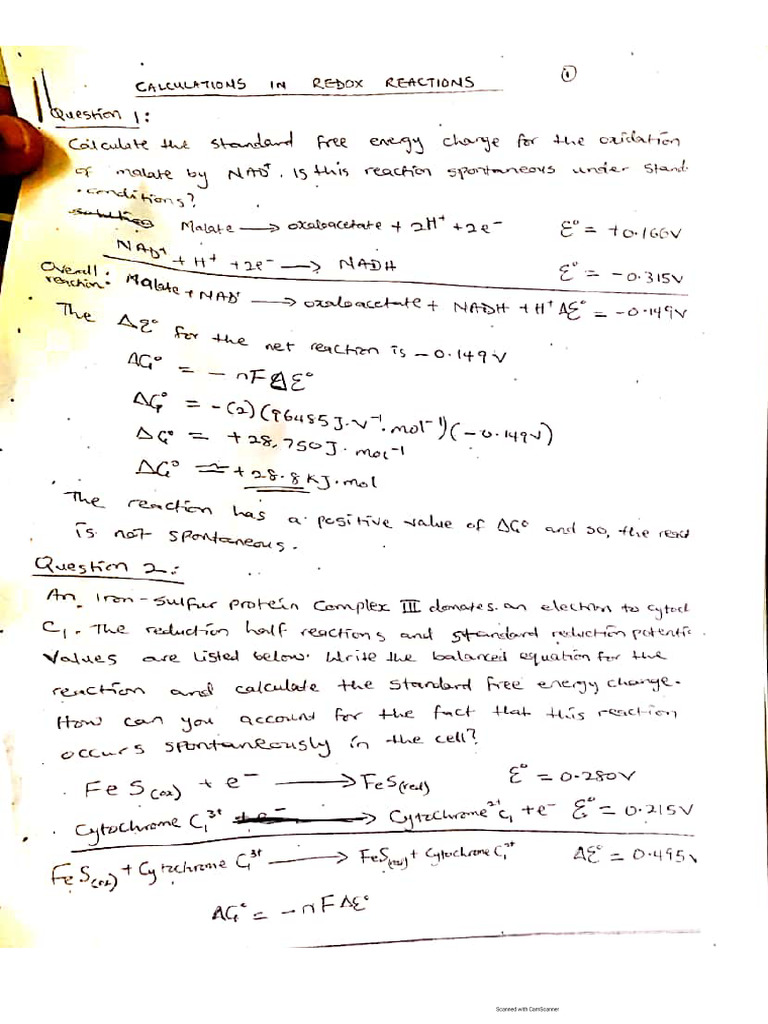 CALCULATIONS IN REDOX REACTIONS ①
Question 1:
Calculate the standard free energy change for the oxidation
of malate by NAD⁺. Is this reaction spontaneous under stand-
conditions?
Malate ⟶ oxaloacetate + 2H⁺ + 2e⁻ Ɛ° = +0.166V
NAD⁺ + H⁺ + 2e⁻ ⟶ NADH Ɛ° = -0.315V
Overall reaction: Malate + NAD⁺ ⟶ oxaloacetate + NADH + H⁺ ΔƐ° = -0.149V
The ΔƐ° for the net reaction is -0.149V
ΔG° = -nFΔƐ°
ΔG° = -(2)(96485J.V⁻¹.mol⁻¹)(-0.149V)
ΔG° = +28,750J.mol⁻¹
ΔG° ≈ +28.8KJ.mol
The reaction has a positive value of ΔG° and so, the react
is not spontaneous.
Question 2:
An Iron-sulfur protein Complex III donates an electron to cytoch
C₁. The reduction half reactions and standard reduction potentic
Values are listed below. Write the balanced equation for the
reaction and calculate the standard free energy change.
How can you account for the fact that this reaction
occurs spontaneously in the cell?
FeS(ox) + e⁻ ⟶ FeS(red) Ɛ° = 0.280V
Cytochrome C₁³⁺ ⟶ Cytochrome²⁺ C₁ + e⁻ Ɛ° = 0.215V
FeS(ox) + Cytochrome C₁³⁺ ⟶ FeS(red) + Cytochrome C₁²⁺ ΔƐ° = 0.495V
ΔG° = -nFΔƐ°
Scanned with CamScanner